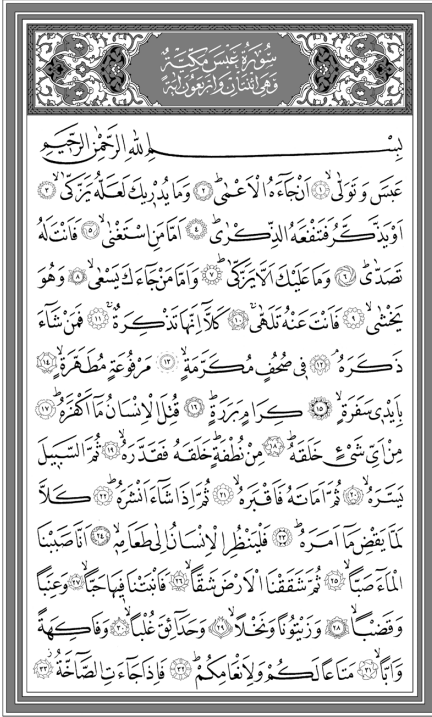 سُورَةُ عَبَسَ مَكِّيَّةٌ
وَهِيَ اثْنَتَانِ وَأَرْبَعُونَ آيَةً
بِسْمِ اللهِ الرَّحْمٰنِ الرَّحِيمِ
عَبَسَ وَتَوَلّٰىۙ ﴿١﴾ اَنْ جَٓاءَهُ الْاَعْمٰىۜ ﴿٢﴾ وَمَا يُدْرِيكَ لَعَلَّهُ يَزَّكّٰىۙ ﴿٣﴾
اَوْ يَذَّكَّرُ فَتَنْفَعَهُ الذِّكْرٰىۜ ﴿٤﴾ اَمَّا مَنِ اسْتَغْنٰىۙ ﴿٥﴾ فَاَنْتَ لَهُ
تَصَدّٰىۜ ﴿٦﴾ وَمَا عَلَيْكَ اَلَّا يَزَّكّٰىۜ ﴿٧﴾ وَاَمَّا مَنْ جَٓاءَكَ يَسْعٰىۙ ﴿٨﴾ وَهُوَ
يَخْشٰىۙ ﴿٩﴾ فَاَنْتَ عَنْهُ تَلَهّٰىۚ ﴿١٠﴾ كَلَّٓا اِنَّهَا تَذْكِرَةٌۚ ﴿١١﴾ فَمَنْ شَٓاءَ
ذَكَرَهُۢ ﴿١٢﴾ فِي صُحُفٍ مُكَرَّمَةٍۙ ﴿١٣﴾ مَرْفُوعَةٍ مُطَهَّرَةٍۙ ﴿١٤﴾
بِاَيْدِي سَفَرَةٍۙ ﴿١٥﴾ كِرَامٍ بَرَرَةٍۜ ﴿١٦﴾ قُتِلَ الْاِنْسَانُ مَٓا اَكْفَرَهُۜ ﴿١٧﴾
مِنْ اَيِّ شَيْءٍ خَلَقَهُۜ ﴿١٨﴾ مِنْ نُطْفَةٍۜ خَلَقَهُ فَقَدَّرَهُۙ ﴿١٩﴾ ثُمَّ السَّبِيلَ
يَسَّرَهُۙ ﴿٢٠﴾ ثُمَّ اَمَاتَهُ فَاَقْبَرَهُۙ ﴿٢١﴾ ثُمَّ اِذَا شَٓاءَ اَنْشَرَهُۜ ﴿٢٢﴾ كَلَّا
لَمَّا يَقْضِ مَٓا اَمَرَهُۜ ﴿٢٣﴾ فَلْيَنْظُرِ الْاِنْسَانُ اِلٰى طَعَامِهِۙ ﴿٢٤﴾ اَنَّا صَبَبْنَا
الْمَٓاءَ صَبًّاۙ ﴿٢٥﴾ ثُمَّ شَقَقْنَا الْاَرْضَ شَقًّاۙ ﴿٢٦﴾ فَاَنْبَتْنَا فِيهَا حَبًّاۙ ﴿٢٧﴾ وَعِنَبًا
وَقَضْبًاۙ ﴿٢٨﴾ وَزَيْتُونًا وَنَخْلًاۙ ﴿٢٩﴾ وَحَدَٓائِقَ غُلْبًاۙ ﴿٣٠﴾ وَفَاكِهَةً
وَاَبًّاۙ ﴿٣١﴾ مَتَاعًا لَكُمْ وَلِاَنْعَامِكُمْۜ ﴿٣٢﴾ فَاِذَا جَٓاءَتِ الصَّٓاخَّةُۘ ﴿٣٣﴾